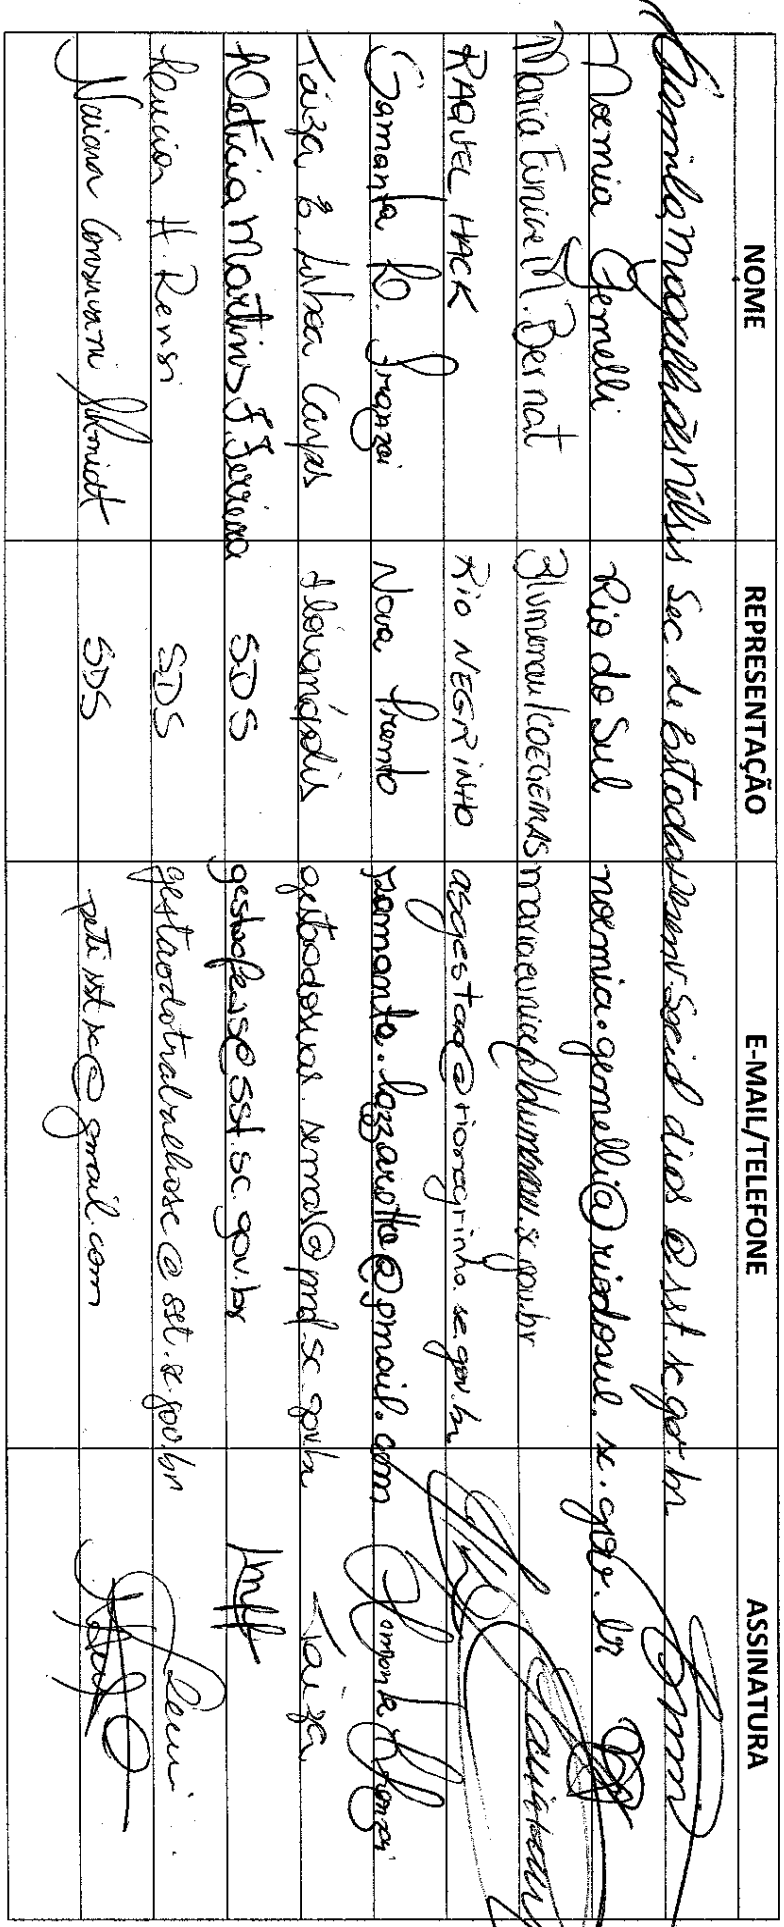 NOME REPRESENTAÇÃO E-MAIL/TELEFONE ASSINATURA
Camila Magalhães Nélsis Sec. de Estado Desenv. Social dias@sst.sc.gov.br
Noemia Gemelli Rio do Sul noemia.gemelli@riodosul.sc.gov.br
Maria Eunice M. Bernat Blumenau/COEGEMAS mariaeunice@blumenau.sc.gov.br
RAQUEL HACK Rio NEGRINHO asgestao@rionegrinho.sc.gov.br
Samanta L. Franzoi Nova Trento samanta.lazzarotto@gmail.com Samanta Franzoi
Taiza Florianópolis gestaodosuas.semas@pmf.sc.gov.br Taiza
Letícia Martins F. Ferreira SDS gestaofeas@sst.sc.gov.br
Lucia H. Rensi SDS gestaodotrabalhosc@sst.sc.gov.br
Naiara Schmidt SDS peti.sst.sc@gmail.com